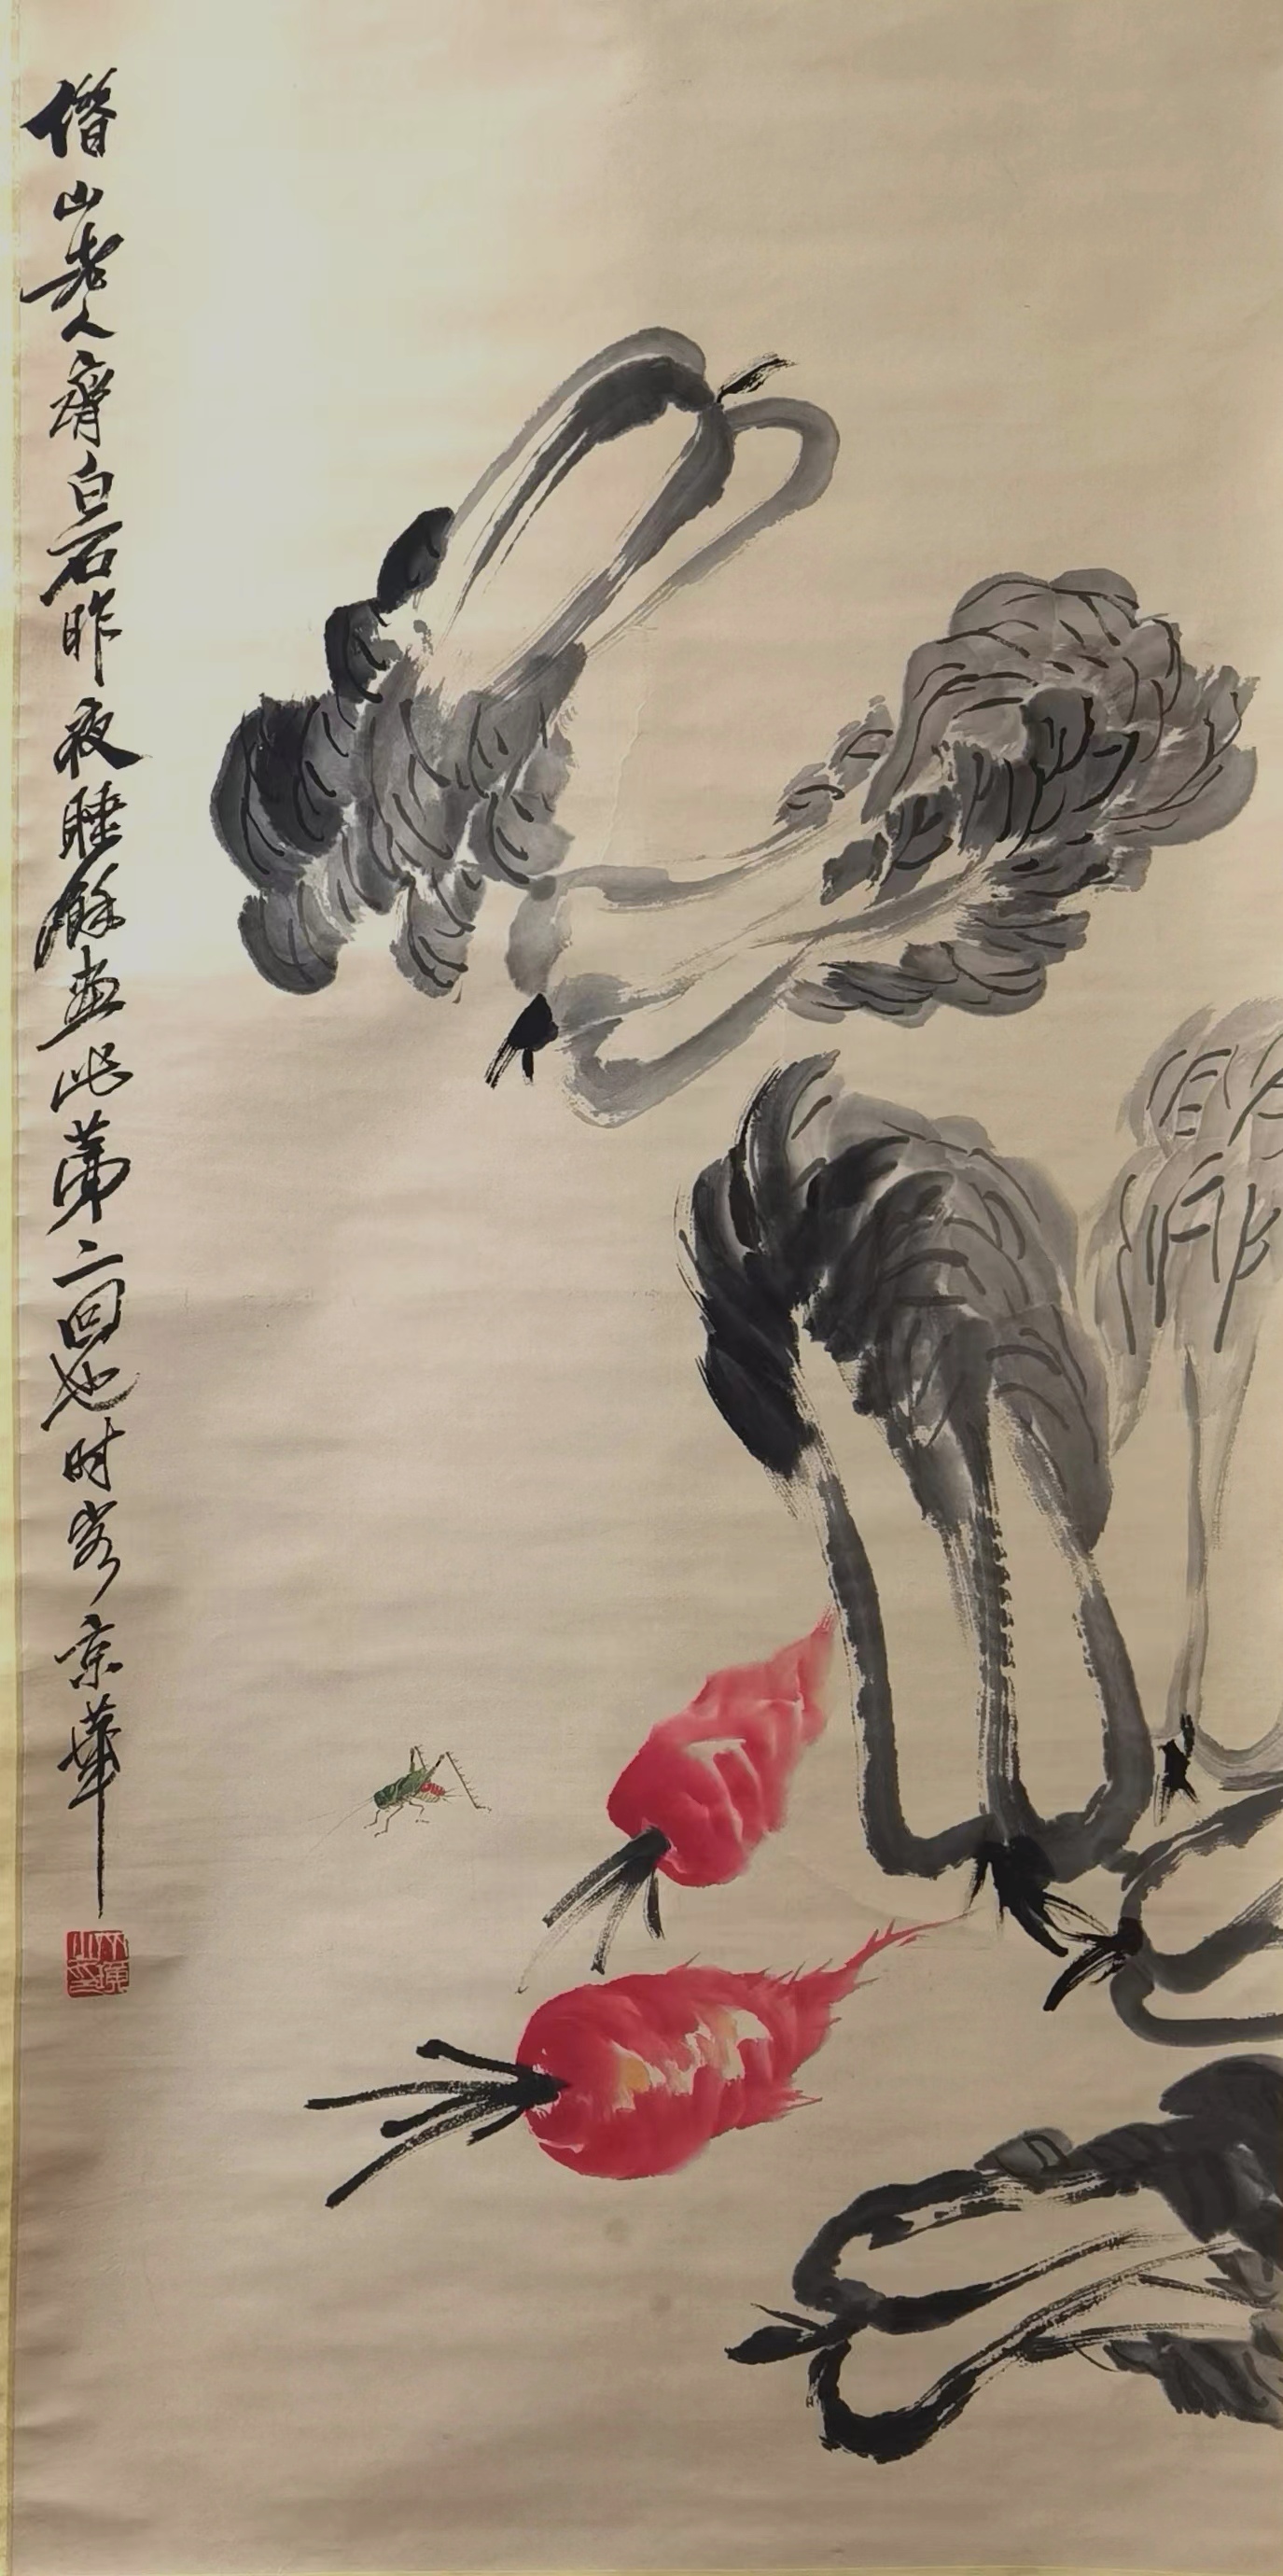 借山老人齊白石昨夜睡餘畫此第二回也时客京華